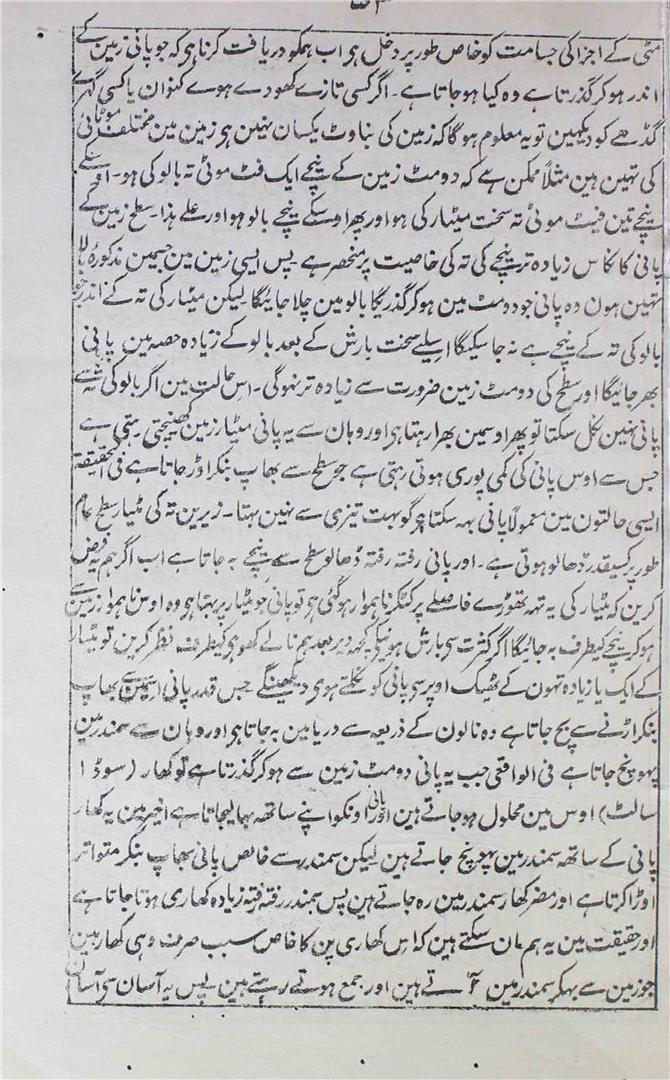 ۵۳
مٹی کے اجزا کی جسامت کو خاص طور پر دخل ہی اب ہمکو دریافت کرنا ہی کہ جو پانی زمین کے
اندر ہوکر گذرتا ہے وہ کیا ہو جاتا ہے۔ اگر کسی تازے کھودے ہوے کنوان یا کسی گہرے
گڈھے کو دیکھین تو یہ معلوم ہوگا کہ زمین کی بناوٹ یکسان نہین ہی زمین مین مختلف موٹائی
کی تہین ہین مثلاً ممکن ہے کہ دومٹ زمین کے نیچے ایک فٹ موٹی تہ بالو کی ہو۔ اسکے
نیچے تین فیٹ موٹی تہ سخت مٹیار کی ہو اور پھر اوسکے نیچے بالو ہو اور علے ہذا۔ سطح زمین کے
پانی کا نکاس زیادہ تر نیچے کی تہ کی خاصیت پر منحصر ہے۔ پس ایسی زمین مین جسمین مذکورہ بالا
تہین ہون وہ پانی جو دومٹ مین ہوکر گذریگا بالو مین چلا جائیگا لیکن مٹیار کی تہ کے اندر جو
بالو کی تہ کے نیچے ہے نہ جا سکیگا اسلیے سخت بارش کے بعد بالو کے زیادہ حصہ مین پانی
بھر جائیگا اور سطح کی دومٹ زمین ضرورت سے زیادہ تر نہوگی۔ اس حالت مین اگر بالو کی تہ سے
پانی نہین نکل سکتا تو پھر اوسمین بھرا رہتا ہی اور وہان سے یہ پانی مٹیار زمین کھینچتی رہتی ہے
جس سے اوس پانی کی کمی پوری ہوتی رہتی ہے جو سطح سے بھاپ بنکر اڑ جاتا ہے فی الحقیقت
ایسی حالتون مین معمولاً پانی بہہ سکتا ہے گو بہت تیزی سے نہین بہتا۔ زیرین تہ کی مٹیار سطح عام
طور پر کسیقدر ڈھالو ہوتی ہے۔ اور پانی رفتہ رفتہ ڈھالو سطح سے نیچے بہ جاتا ہے اب اگر ہم یہ فرض
کرین کہ مٹیار کی یہ تہہ تھوڑے فاصلے پر کٹکر ناہموار ہوگئی ہی تو پانی جو مٹیار پر بہتا ہی وہ اوس ناہموار زمین سے
ہوکر نیچے کیطرف بہ جائیگا اگر کثرت سی بارش ہونیکی کچھہ دیر بعد ہم نالے کھوہی کیطرف نظر کرین تو مٹیار
کے ایک یا زیادہ تہون کے ٹھیک اوپر سی پانی کو نکلتے ہوی دیکھینگے جس قدر پانی اسمین سے بھاپ
بنکر اڑنے سے بچ جاتا ہے وہ نالون کے ذریعہ سے دریا مین بہ جاتا ہی اور وہان سے سمندر مین
پہونچ جاتا ہے فی الواقعی جب یہ پانی دومٹ زمین سے ہوکر گذرتا ہے تو کھار (سوڈا
سالٹ) اوس مین محلول ہو جاتے ہین اور پانی اونکو اپنے ساتھہ بہا لیجاتا ہے اخیر مین یہ کھار
پانی کے ساتھہ سمندر مین پہونچ جاتے ہین لیکن سمندر سے خالص پانی بھاپ بنکر متواتر
اوڑا کرتا ہے اور مضر کھار سمندر مین رہ جاتے ہین پس سمندر رفتہ رفتہ زیادہ کھاری ہوتا جاتا ہے
اور حقیقت مین یہ ہم مان سکتے ہین کہ اس کھاری پن کا خاص سبب صرف وہی کھار ہین
جو زمین سے بہکر سمندر مین آتے ہین اور جمع ہوتے رہتے ہین پس یہ آسان سی آسان